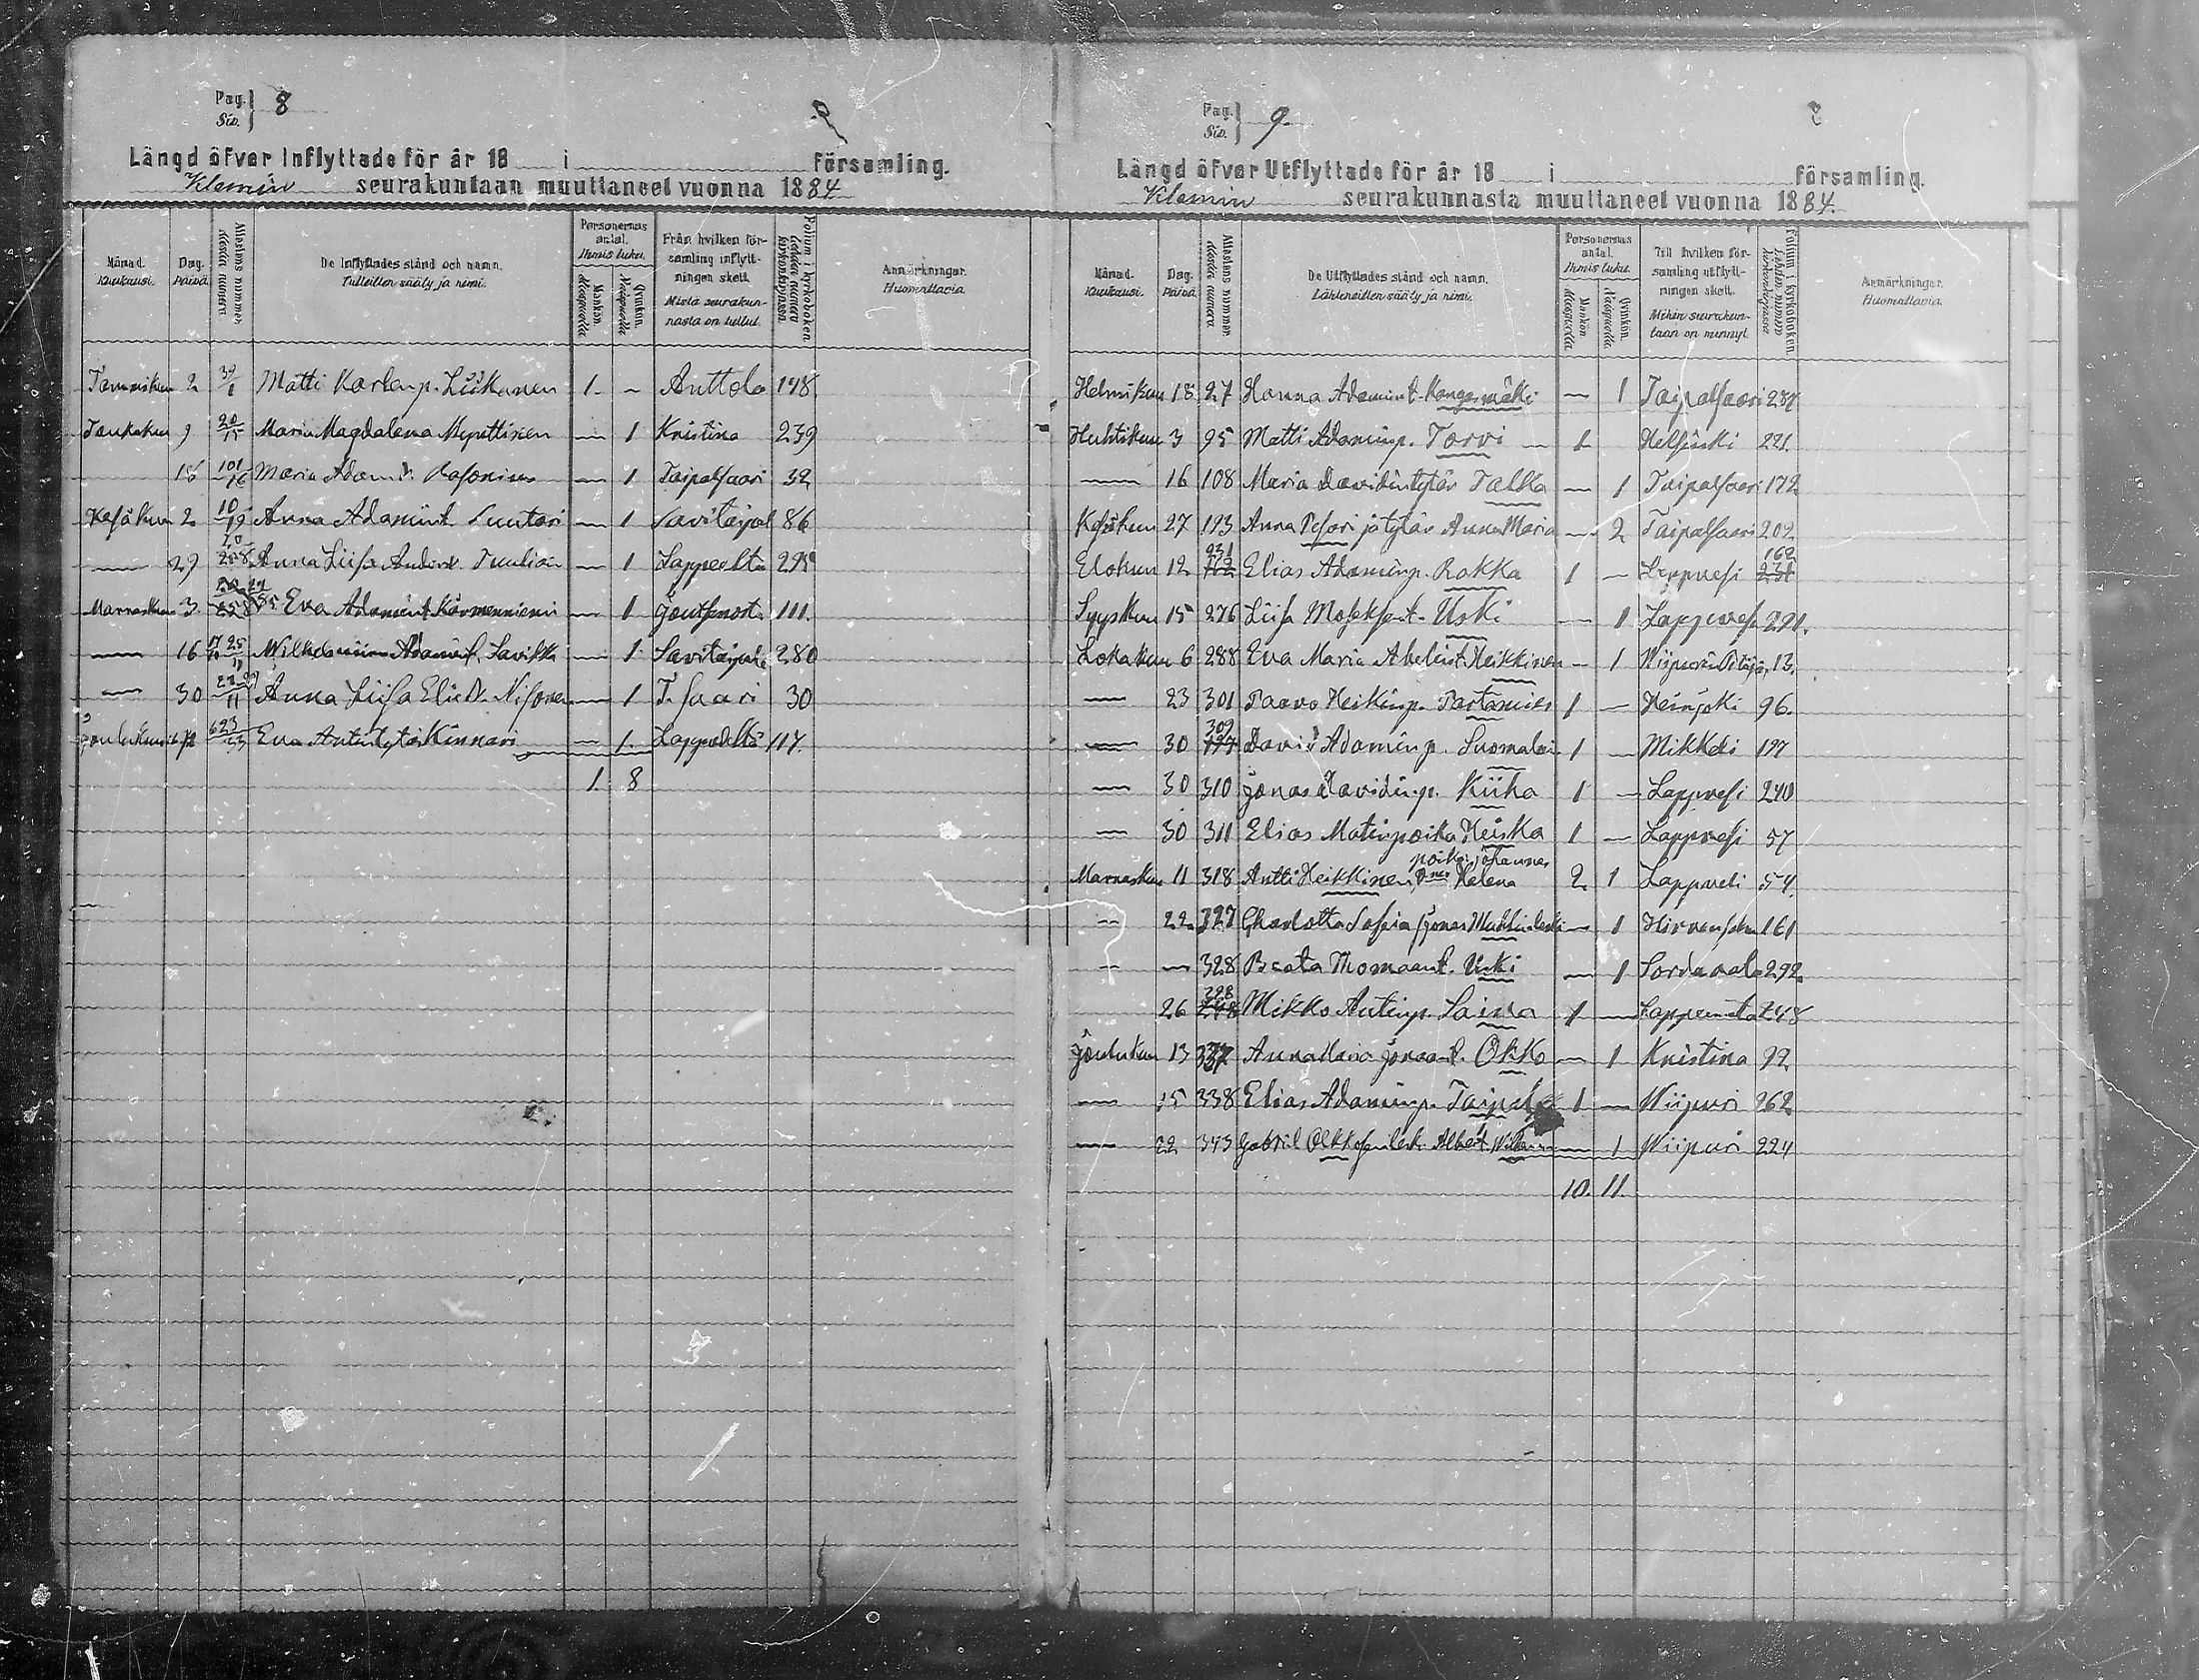 Pag. Siv. } 8
Längd öfver Inflyttade för år 18 i församling.
Klemin seurakuntaan muuttaneet vuonna 1884
Månad. Kuukausi. Dag. Päivä. Attestens nummer. Atestin numero De Inflyttades stånd och namn. Tulleitten sääty ja nimi. Personernas antal. Ihmis luku. Mankön. Miespuolia Qvinkön. Vaimopuolia Från hvilken församling inflyttningen skett. Mistä seurakunnasta on tullut. Folium i kyrkoboken Lehden numero kirkonkirjassa Anmärkningar. Huomattavia.
Tammikuu 2 Matti Karlinp. Liikanen 1. – Anttola 148
Toukokuu 9 20/15 Maria Magdalena Myyttinen — 1 Kristina 239
18 101/16 Maria Adamt. — 1 Taipalsaari 32
Kesäkuu 2 10/19 Anna Adamint. Suutari — 1 Savitaipal 86
— 29 Anna Liisa — 1 Lappeelta 295
Marraskuu 3. Eva Adamint. Kärmenniemi — 1 Joutsenosta 111.
— 16 Adamint. Lavikka — 1 Savitaipale 280
— 30 Anna Liisa — 1 T. saari 30
Joulukuu Eva Antintytär Kinnari — 1. Lappeelta 117.
1 8
Pag. Siv. } 9.
Längd öfver Utflyttade för år 18 i församling.
Klemin seurakunnasta muuttaneet vuonna 1884.
Månad. Kuukausi. Dag. Päivä Attestens nummer. Atestin numero De Utflyttades stånd och namn. Lähteneitten sääty ja nimi. Personernas antal. Ihmis luku. Mankön. Miespuolia Qvinkön. Vaimopuolia Till hvilken församling utflyttningen skett. Mihin seurakuntaan on mennyt. Folium i kyrkoboken. Lehden numero kirkonkirjassa Anmärkningar. Huomattavia.
Helmikuu 18 27 Hanna Adamint. Kangasmäki — 1 Taipalsaari 287
Huhtikuu 3 95 Matti Adaminp. Torvi — 1 Helsinki 221.
— 16 108 Maria Davidintytär Talka — 1 Taipalsaari 172
Kesäkuu 27 193 Anna Pesari ja tytär Anna Maria — 2 Taipalsaari 202
Elokuu 12 231 Elias Adaminp. Rakka 1 — Lappvesi 162
Syyskuu 15 276 Liisa Uski — 1 Lappvesi 291.
Lokakuu 6 288 Eva Maria Abelint. Heikkinen — 1 Wiipurin Pitäjä 13.
— 23 301 Paavo Heikinp. Partamies 1 — Heinjoki 96.
— 30 309 David Adaminp. Suomalai 1 — Mikkeli 197
— 30 310 Jonas Davidinp. Kiiha 1 — Lappvesi 240
— 30 311 Elias Matinpoika Heiska 1 — Lappvesi 57
poika Johannes
Marraskuu 11 318 Antti Heikkinen, Helena 2 1 Lappvesi 54.
— 22 327 Charlotta Sofia Jonas — 1 161
— — 328 Beata Thomaant. Uski — 1 Sordavala 292
26 328 Mikko Antinp. Saira 1 — Lappeenranta 248
Joulukuu 13 337 Anna Maria Jonaant. Okko — 1 Kristina 92
— 15 338 Elias Adaminp. Taipale 1 — Wiipuri 262
— 22 343 Gabriel — 1 Wiipuri 224
10. 11.